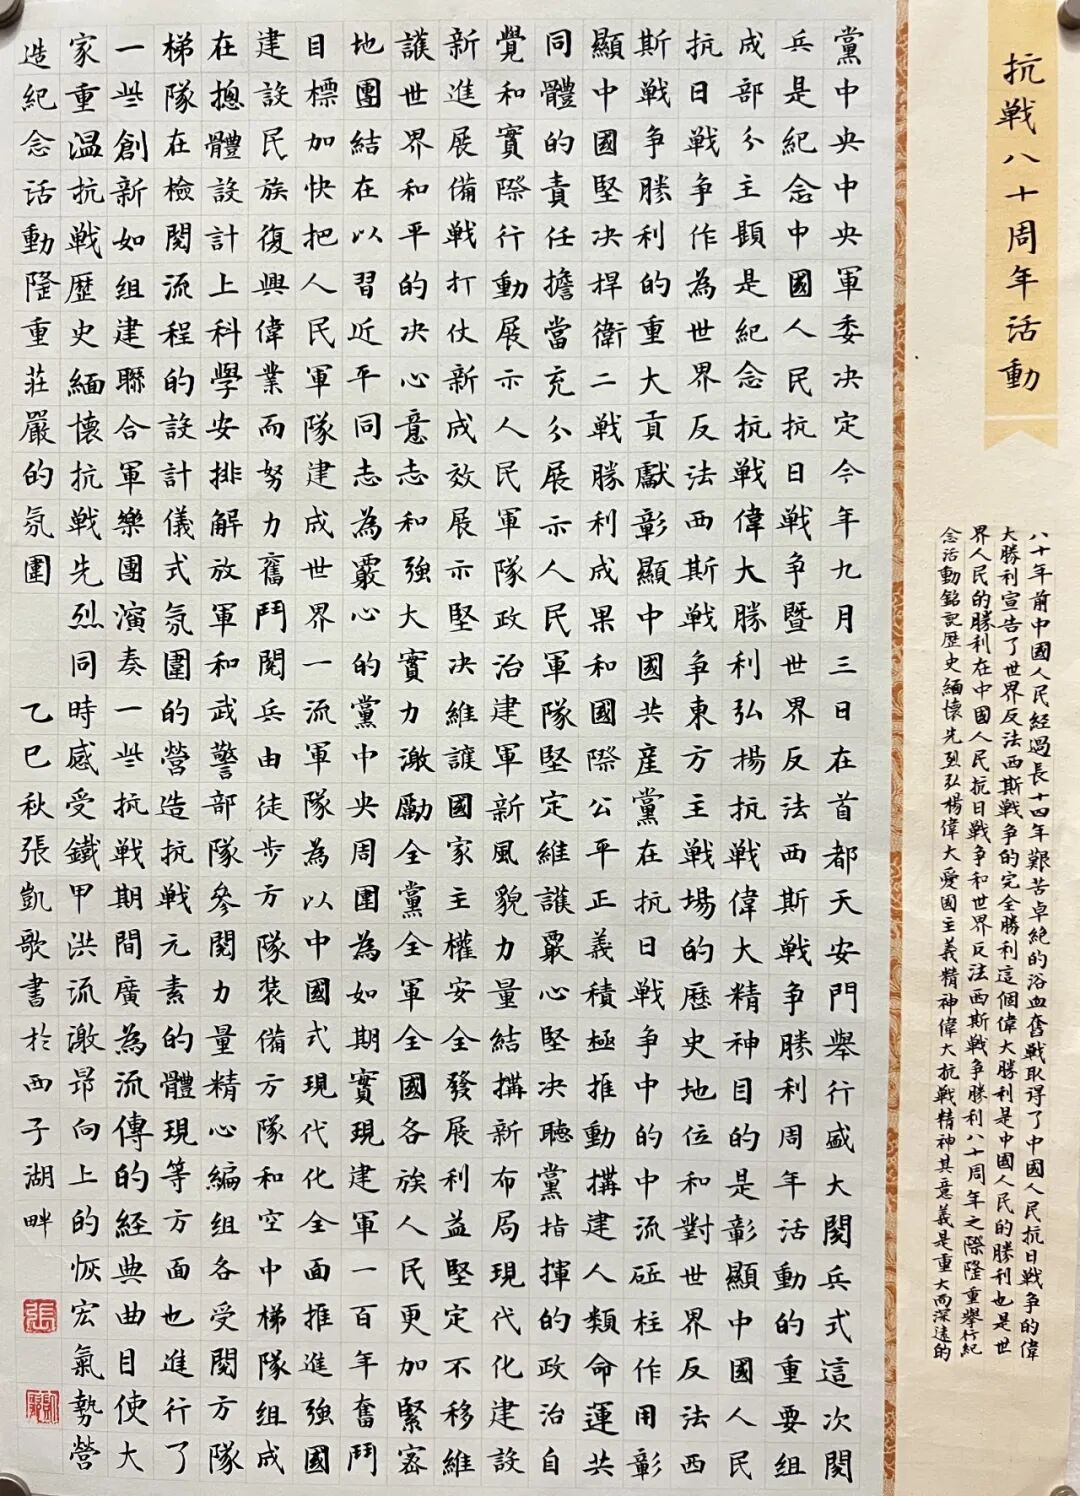 抗戰八十周年活動
八十年前中國人民經過長十四年艱苦卓絶的浴血奮戰取得了中國人民抗日戰争的偉
大勝利宣告了世界反法西斯戰争的完全勝利這個偉大勝利是中國人民的勝利也是世
界人民的勝利在中國人民抗日戰争和世界反法西斯戰争勝利八十周年之際隆重舉行紀
念活動銘記歷史緬懷先烈弘楊偉大愛國主義精神偉大抗戰精神其意義是重大而深遠的
黨中央中央軍委决定今年九月三日在首都天安門舉行盛大閱兵式這次閱
兵是紀念中國人民抗日戰争暨世界反法西斯戰争勝利周年活動的重要組
成部分主題是紀念抗戰偉大勝利弘揚抗戰偉大精神目的是彰顯中國人民
抗日戰争作為世界反法西斯戰争東方主戰場的歷史地位和對世界反法西
斯戰争勝利的重大貢獻彰顯中國共産黨在抗日戰争中的中流砥柱作用彰
顯中國堅决捍衛二戰勝利成果和國際公平正義積極推動構建人類命運共
同體的責任擔當充分展示人民軍隊堅定維護覈心堅决聽黨指揮的政治自
覺和實際行動展示人民軍隊政治建軍新風貌力量結構新布局現代化建設
新進展備戰打仗新成效展示堅决維護國家主權安全發展利益堅定不移維
護世界和平的决心意志和強大實力激勵全黨全軍全國各族人民更加緊密
地團結在以習近平同志為覈心的黨中央周圍為如期實現建軍一百年奮鬥
目標加快把人民軍隊建成世界一流軍隊為以中國式現代化全面推進強國
建設民族復興偉業而努力奮鬥閱兵由徒步方隊裝備方隊和空中梯隊組成
在摠體設計上科學安排解放軍和武警部隊參閱力量精心編組各受閱方隊
梯隊在檢閱流程的設計儀式氛圍的營造抗戰元素的體現等方面也進行了
一些創新如組建聯合軍樂團演奏一些抗戰期間廣為流傳的經典曲目使大
家重温抗戰歷史緬懷抗戰先烈同時感受鐵甲洪流激昂向上的恢宏氣勢營
造紀念活動隆重莊嚴的氛圍 乙巳秋張凱歌書於西子湖畔
張